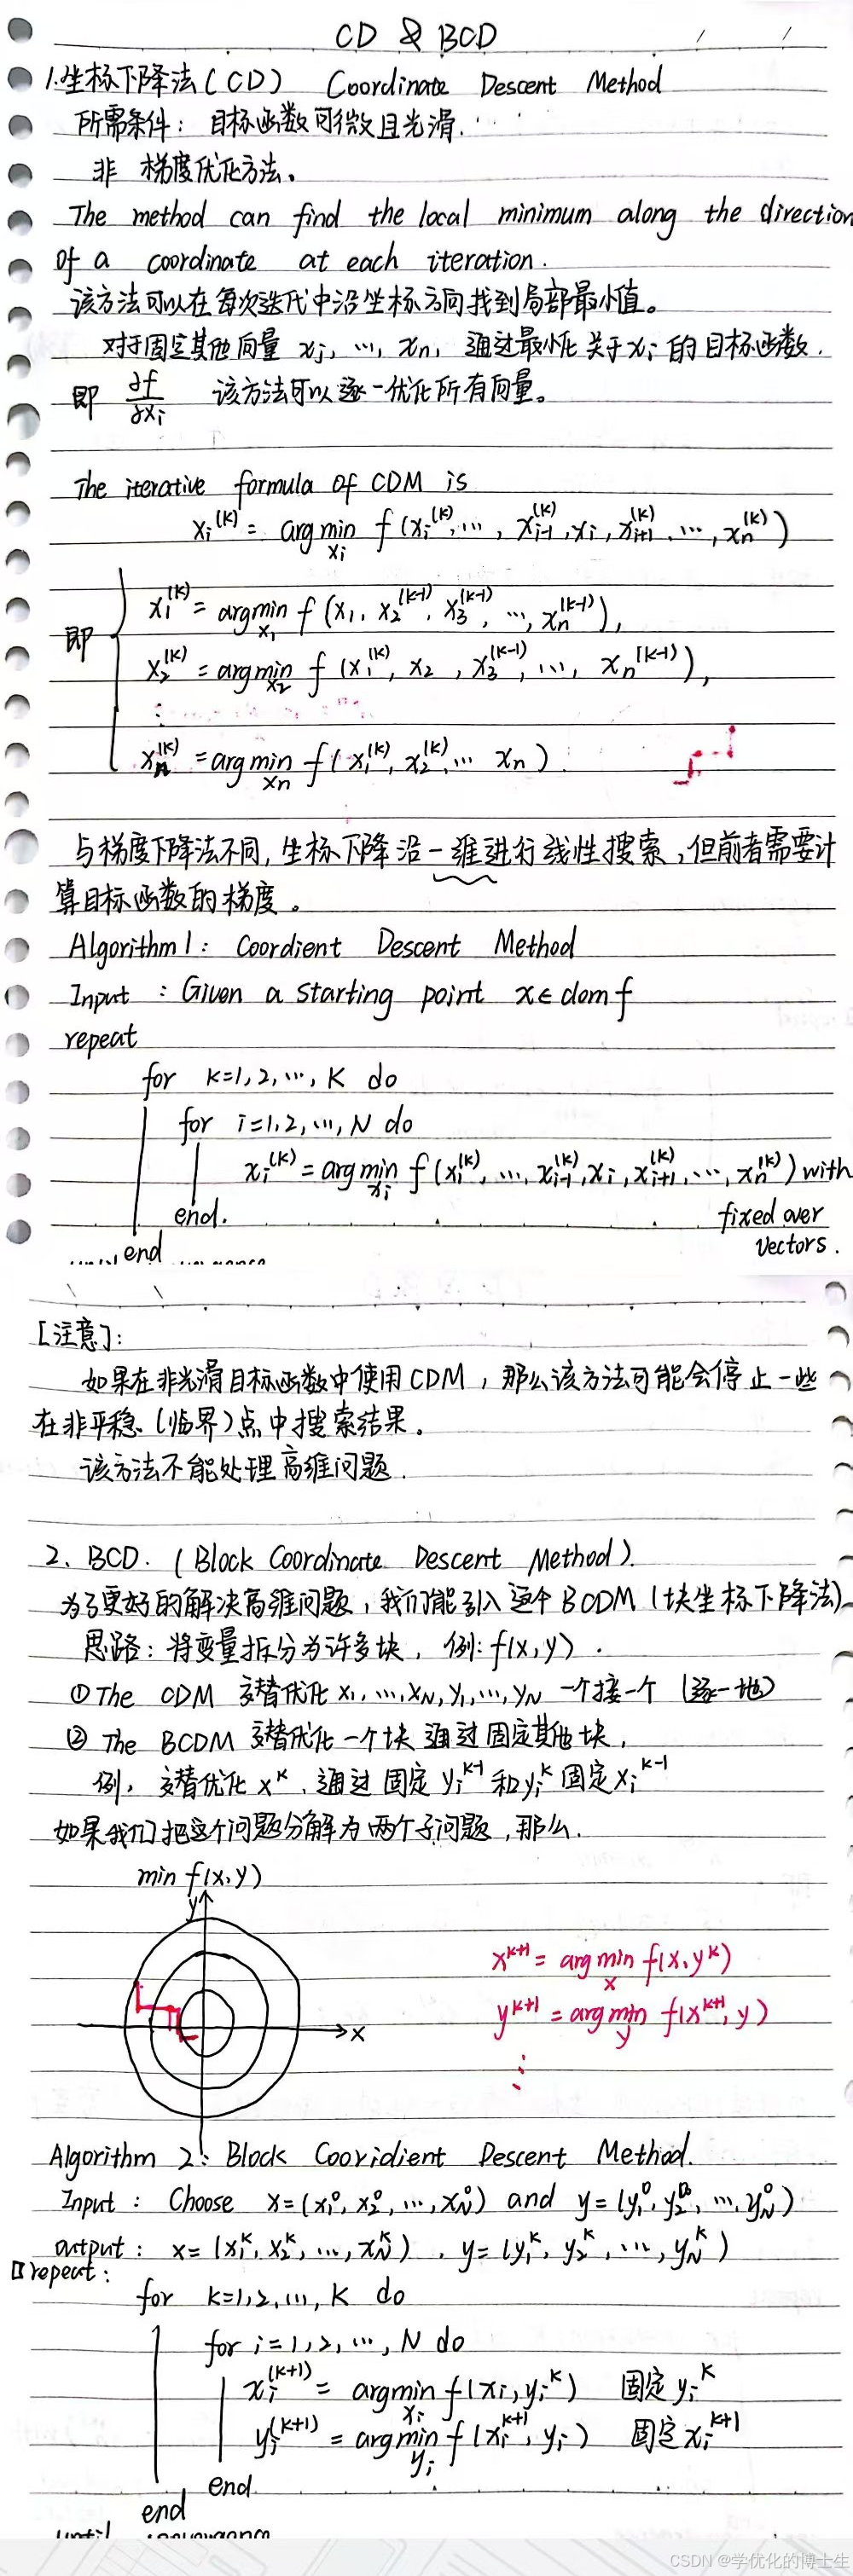 CD & BCD
1.坐标下降法(CD) Coordinate Descent Method
所需条件: 目标函数可微且光滑.
非 梯度优化方法。
The method can find the local minimum along the direction
of a coordinate at each iteration.
该方法可以在每次迭代中沿坐标方向找到局部最小值。
对于固定其他向量 xj, ..., xn, 通过最小化关于xi的目标函数.
即 ∂f/∂xi 该方法可以逐一优化所有向量。
The iterative formula of CDM is
xi^(k) = argmin_xi f(xi^(k), ..., xi-1^(k), xi, xi+1^(k), ..., xn^(k))
即 { x1^(k) = argmin_x1 f(x1, x2^(k-1), x3^(k-1), ..., xn^(k-1)),
x2^(k) = argmin_x2 f(x1^(k), x2, x3^(k-1), ..., xn^(k-1)),
⋮
xn^(k) = argmin_xn f(x1^(k), x2^(k), ... xn).
与梯度下降法不同, 坐标下降沿一维进行线性搜索, 但前者需要计
算目标函数的梯度。
Algorithm 1: Coordient Descent Method
Input : Given a starting point x∈dom f
repeat
for k=1,2,...,K do
for i=1,2,...,N do
xi^(k) = argmin_xi f(xi^(k), ..., xi-1^(k), xi, xi+1^(k), ..., xn^(k)) with
end. fixed over
vectors.
end
[注意]:
如果在非光滑目标函数中使用CDM, 那么该方法可能会停止一些
在非平稳(临界)点中搜索结果。
该方法不能处理高维问题.
2. BCD. (Block Coordinate Descent Method).
为了更好的解决高维问题, 我们能引入这个BCDM (块坐标下降法)
思路: 将变量拆分为许多块, 例: f(x,y).
① The CDM 交替优化 x1,...,xN,y1,...,yN 一个接一个 (逐一地)
② The BCDM 交替优化一个块通过固定其他块,
例, 交替优化 x^k, 通过固定 yi^k-1 和 yi^k 固定 xi^k-1
如果我们把这个问题分解为两个子问题, 那么.
min f(x,y)
y
x^k+1 = argmin_x f(x,y^k)
y^k+1 = argmin_y f(x^k+1, y)
x
⋮
Algorithm 2: Block Cooridient Descent Method.
Input : Choose x=(x1^0, x2^0, ..., xN^0) and y=(y1^0, y2^0, ..., yN^0)
output : x=(x1^k, x2^k, ..., xN^k), y=(y1^k, y2^k, ..., yN^k)
repeat:
for k=1,2,...,K do
for i=1,2,...,N do
xi^(k+1) = argmin_xi f(xi, yi^k) 固定 yi^k
yi^(k+1) = argmin_yi f(xi^k+1, yi) 固定 xi^k+1
end
end
CSDN @学优化的博士生